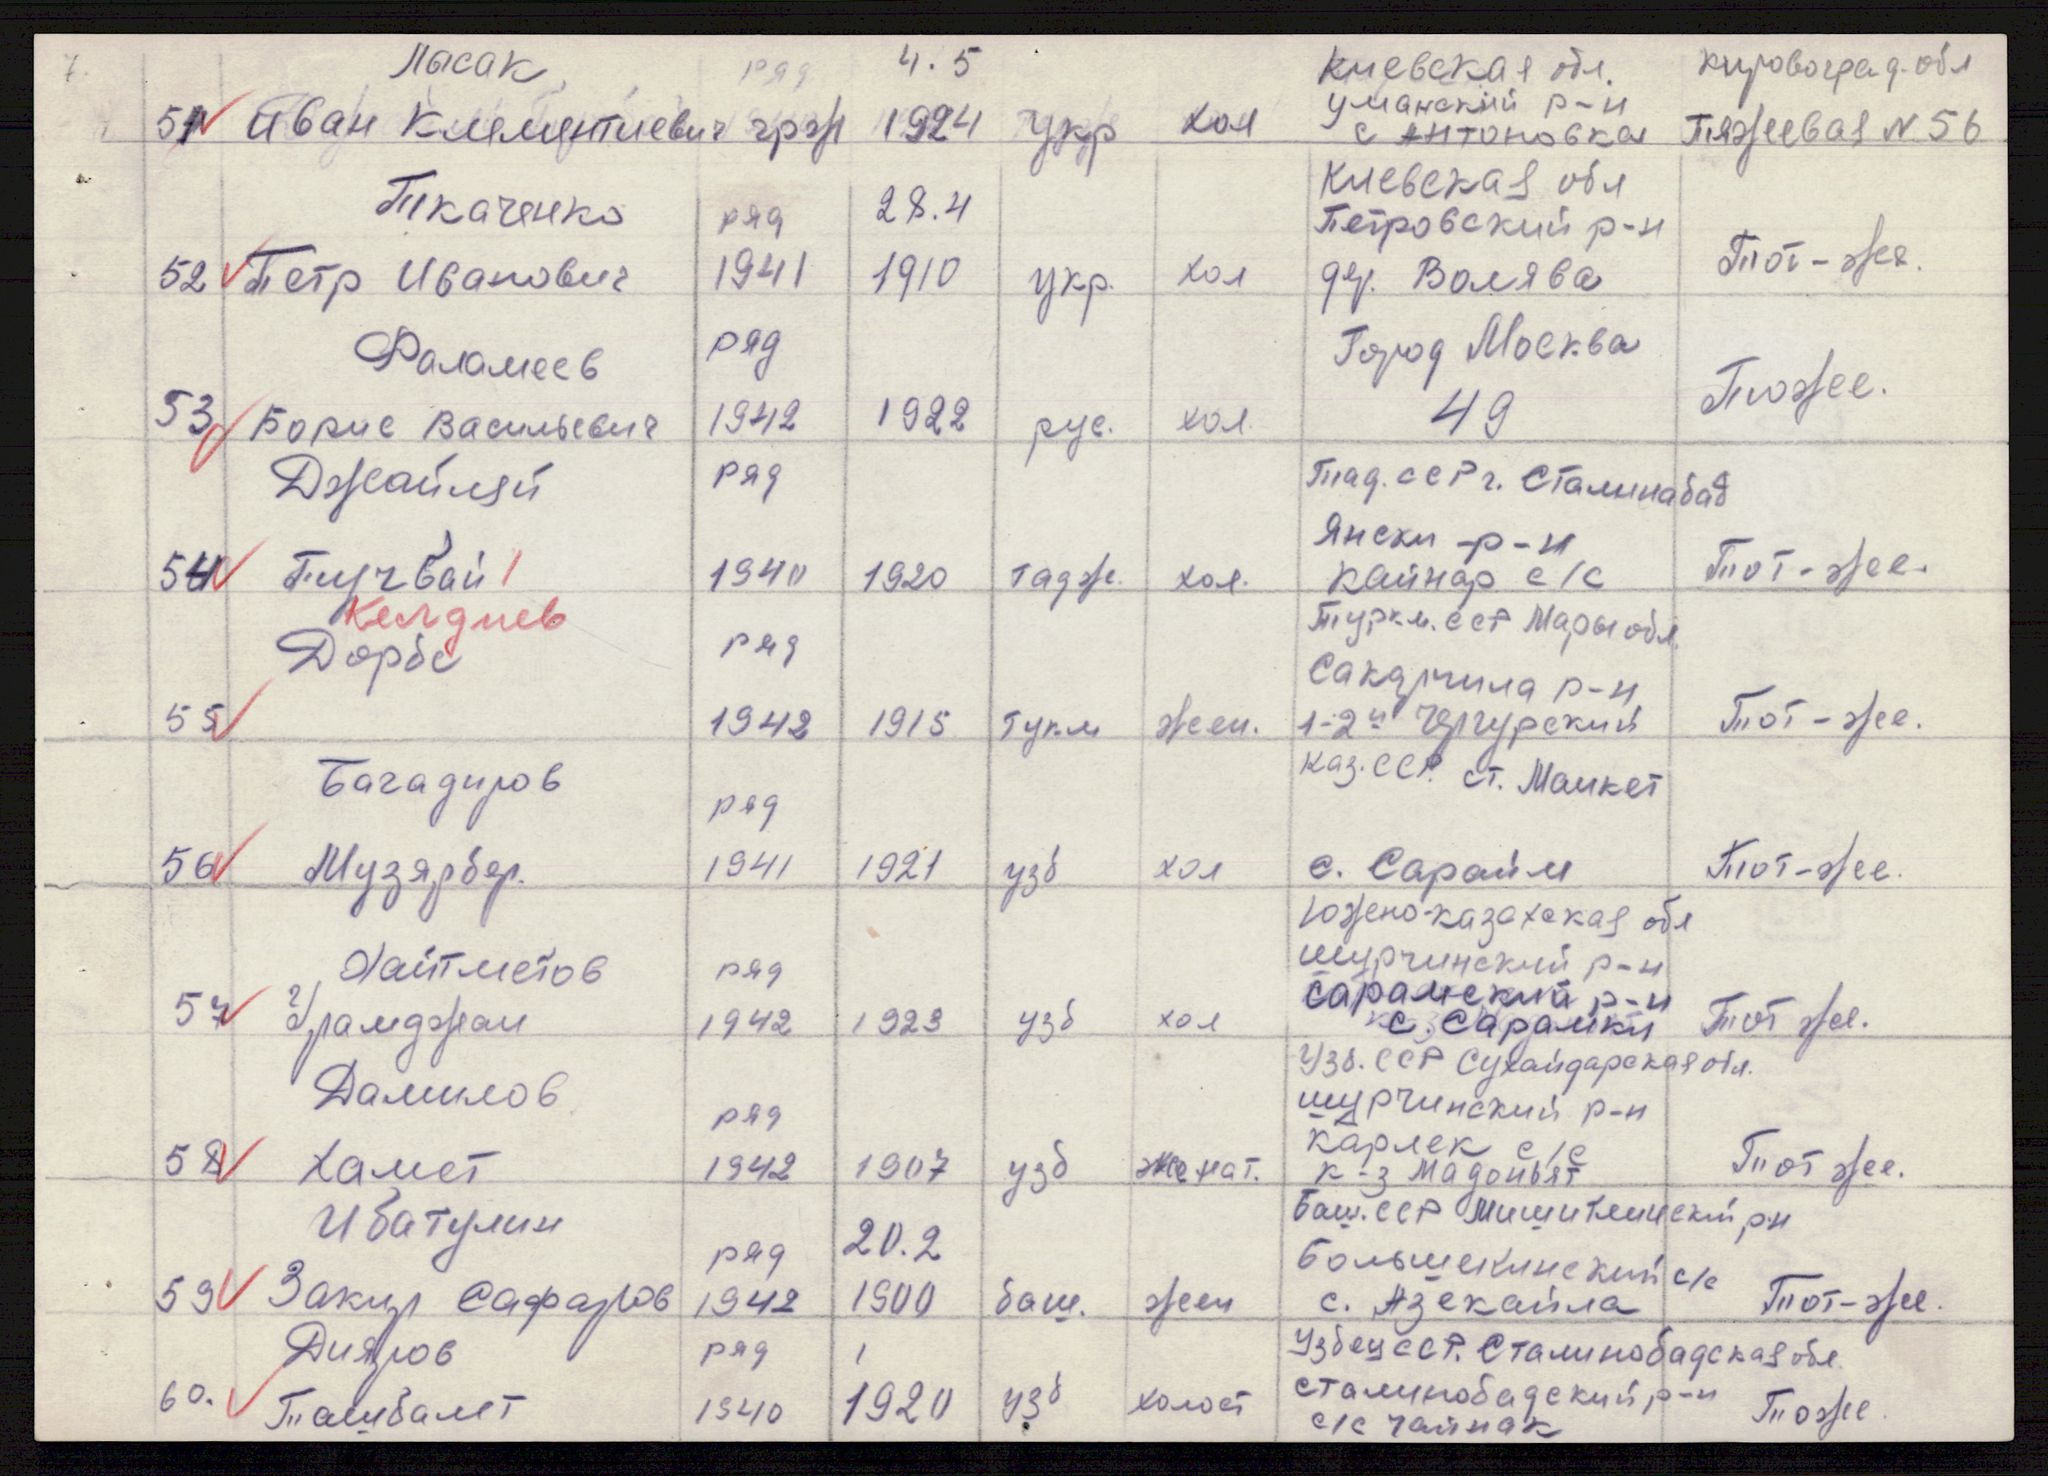 7.
Лысак ряд 4.5 Киевская обл. Кировоград.обл
51 Иван Климентиевич грж 1924 укр хол Уманский р-н
с Антоновка Пяжеевая N 56
Ткаченко ряд 28.4 Киевская обл
Петровский р-н
52 Петр Иванович 1941 1910 укр. хол дер. Волява Тот-же.
Фаламеев ряд Город Москва
53 Борис Васильевич 1942 1922 рус. хол. 49 Тоже.
Джайляй ряд Тад. ССР г. Сталинабад
Янски-р-н
54 Тучбай 1940 1920 тадж. хол. Кайнар с/с Тот-же.
Келдиев
Дорбе ряд Туркм. ССР Мары обл.
Сакарчила р-н
55 1942 1915 тукм жен. 1-2й Чергурский Тот-же.
Багадиров ряд Каз. ССР. ст. Манкет
56 Музярбер. 1941 1921 узб хол с. Сарайм Тот-же.
Южено-казахская обл
Хайтметов ряд шурчинский р-н
Сарамский р-н
57 Урамджан 1942 1923 узб хол с. Сарамки Тот же.
Узб. ССР Сухайдарская обл.
Дамилов ряд шурчинский р-н
Карлек с/с
58 Хамет 1942 1907 узб женат. к-з Мадоньят Тот же.
Ибатулин Баш. ССР Мишитлинский р-н
ряд 20.2 Большекинский с/с
59 Закир Сафаров 1942 1900 баш. жен с. Азекайла Тот-же.
Дияров ряд Узбец ССР. Сталинобадская обл.
60. Ташбамет 1940 1920 узб холост сталинобадский р-н Тоже.
с/с чайнак